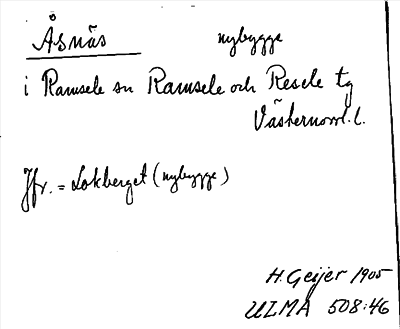 Åsnäs nybygge
i Ramsele sn Ramsele och Resele tg
Västernorrl. l.
Jfr. = Lokberget (nybygge)
H. Geijer 1905
ULMA 508:46